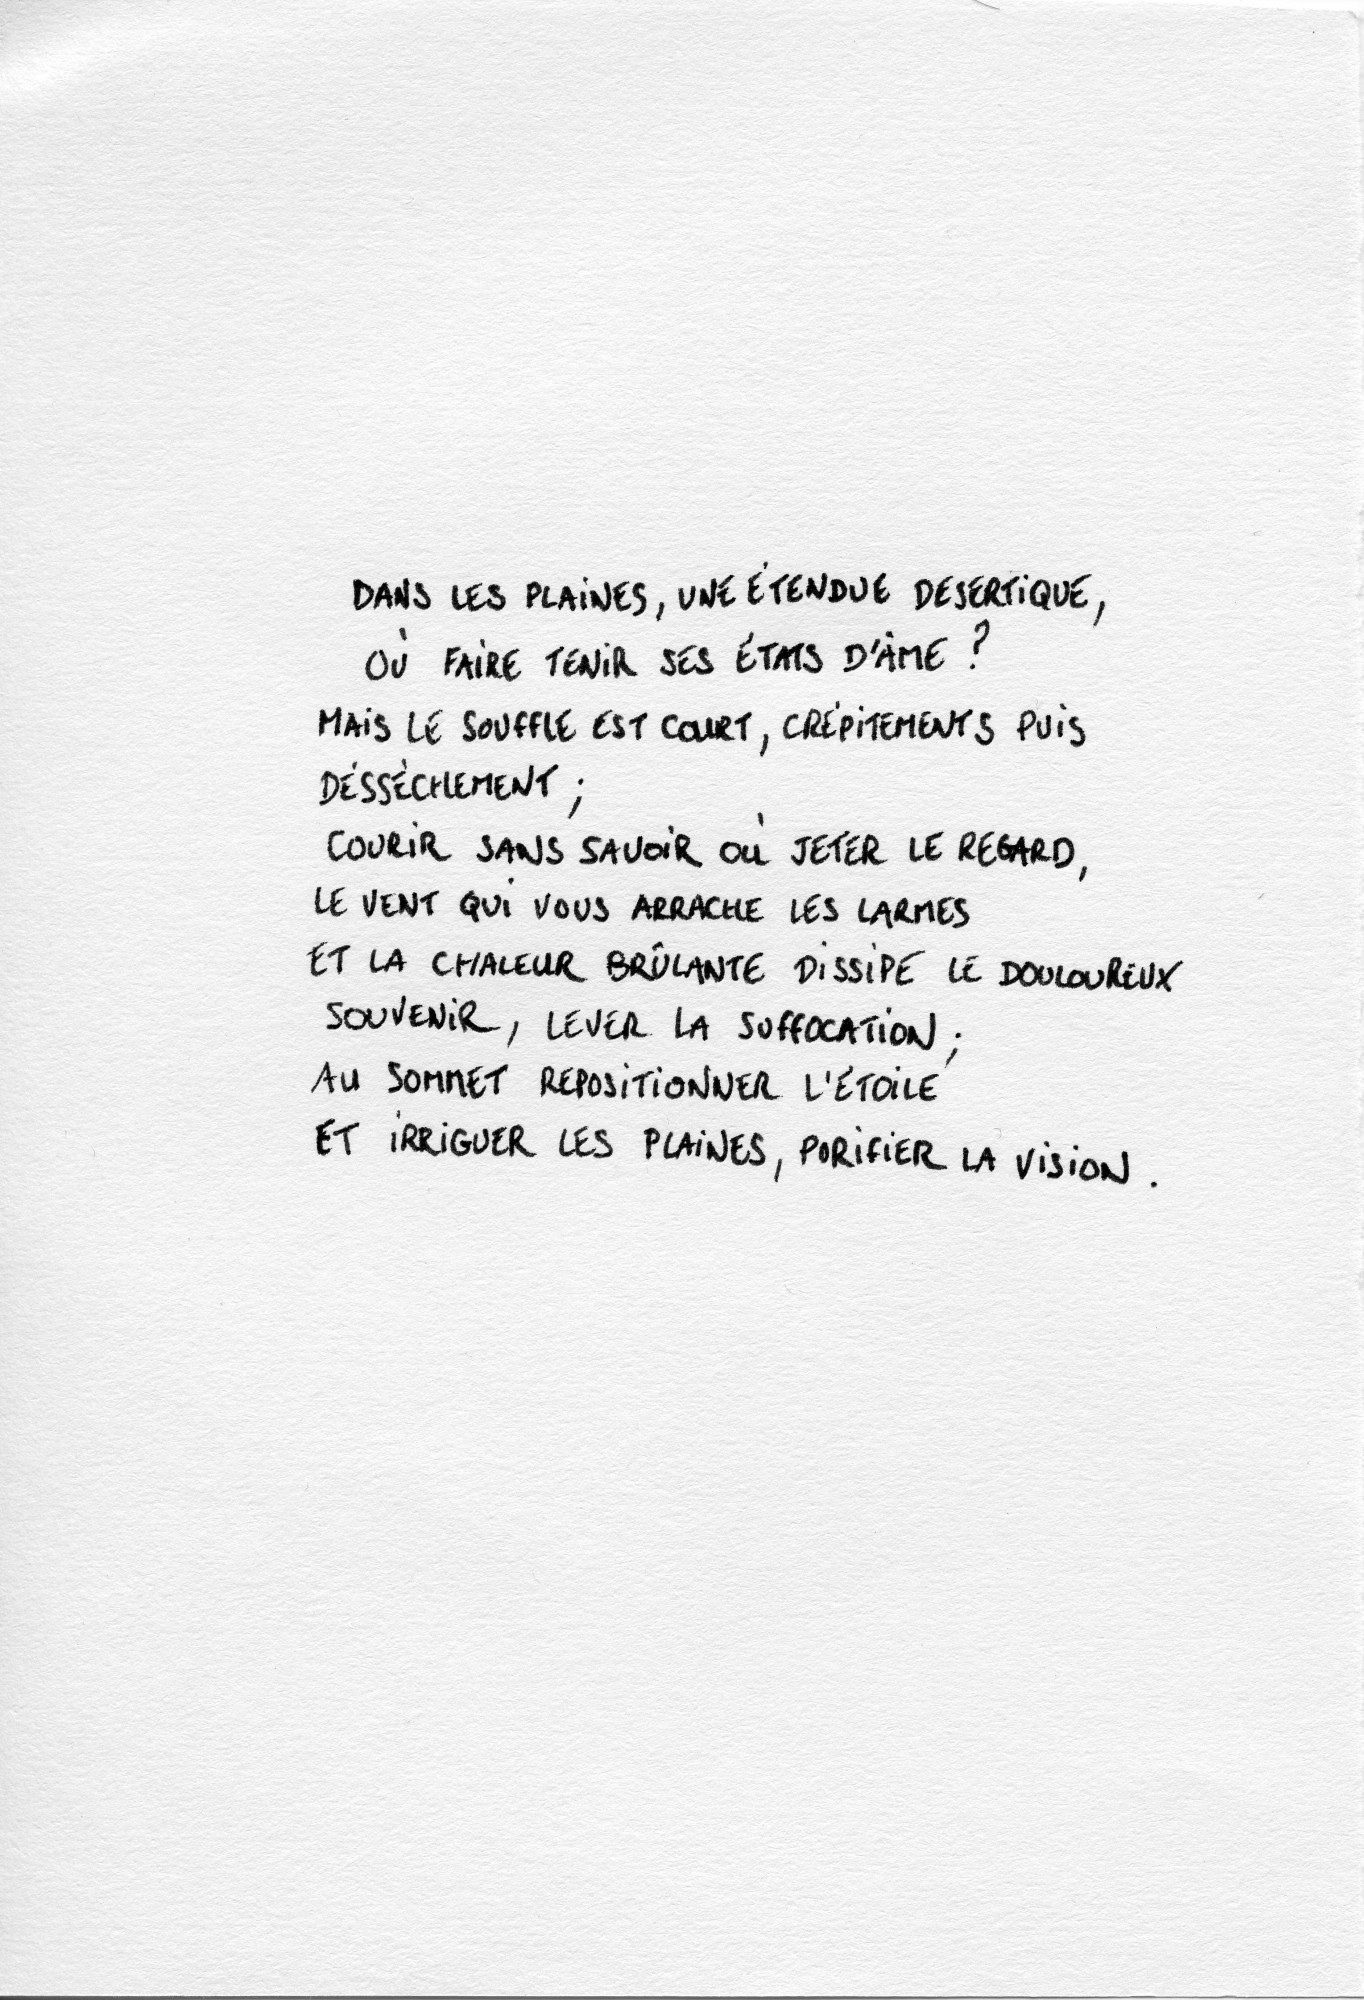 DANS LES PLAINES, UNE ÉTENDUE DESERTIQUE,
OÙ FAIRE TENIR SES ÉTATS D'ÂME ?
MAIS LE SOUFFLE EST COURT, CRÉPITEMENTS PUIS
DÉSSÈCHEMENT ;
COURIR SANS SAVOIR OÙ JETER LE REGARD,
LE VENT QUI VOUS ARRACHE LES LARMES
ET LA CHALEUR BRÛLANTE DISSIPE LE DOULOUREUX
SOUVENIR, LEVER LA SUFFOCATION ;
AU SOMMET REPOSITIONNER L'ÉTOILE
ET IRRIGUER LES PLAINES, PURIFIER LA VISION.